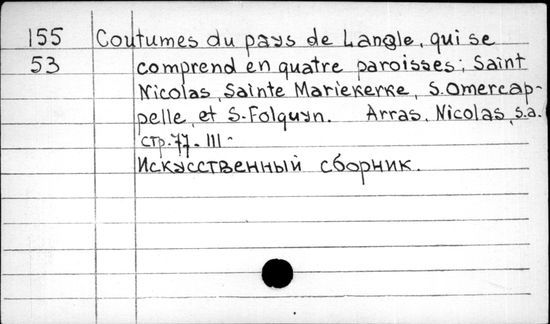 155 Coutumes du pays de Langle, qui se
53 comprend en quatre paroisses; Saint
Nicolas, Sainte Mariekerke, S. Omercap-
pelle, et S. Folquyn. Arras, Nicolas, s.a.
стр. 77-111-
Искусственный сборник.